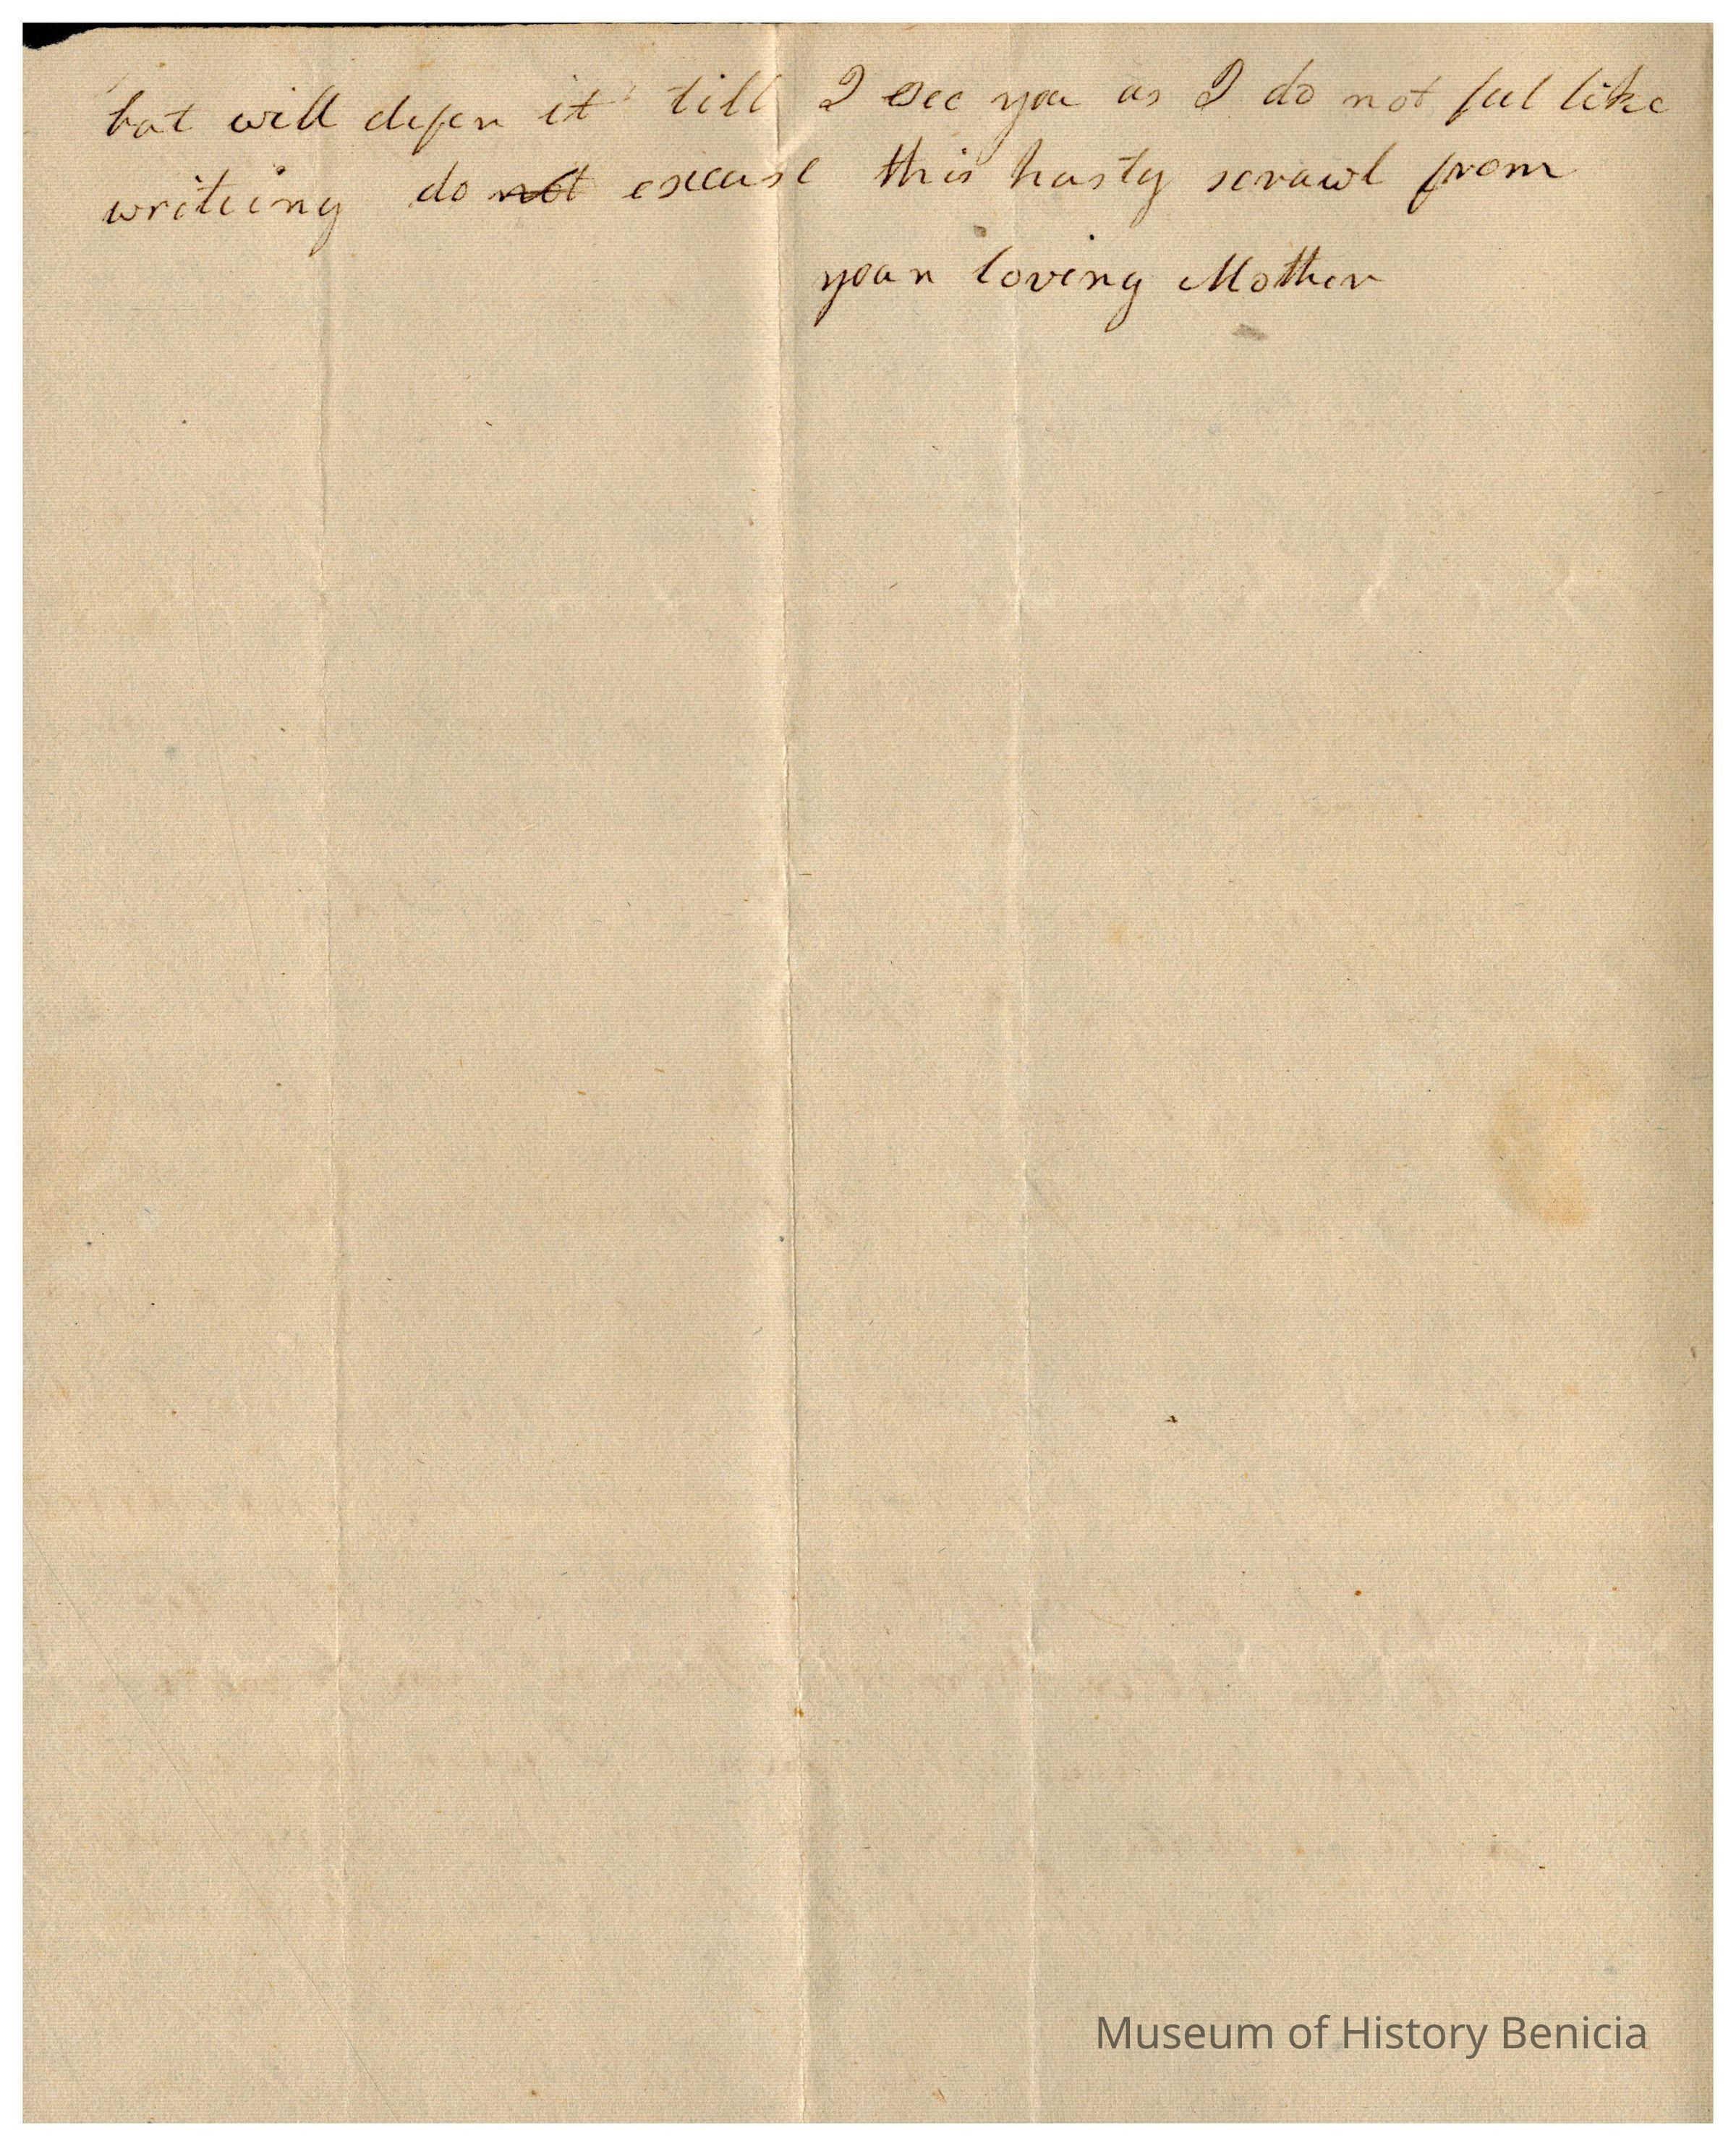 but will defer it till I see you as I do not feel like
writeing do not excuse this hasty scrawl from
your loving Mother
Museum of History Benicia